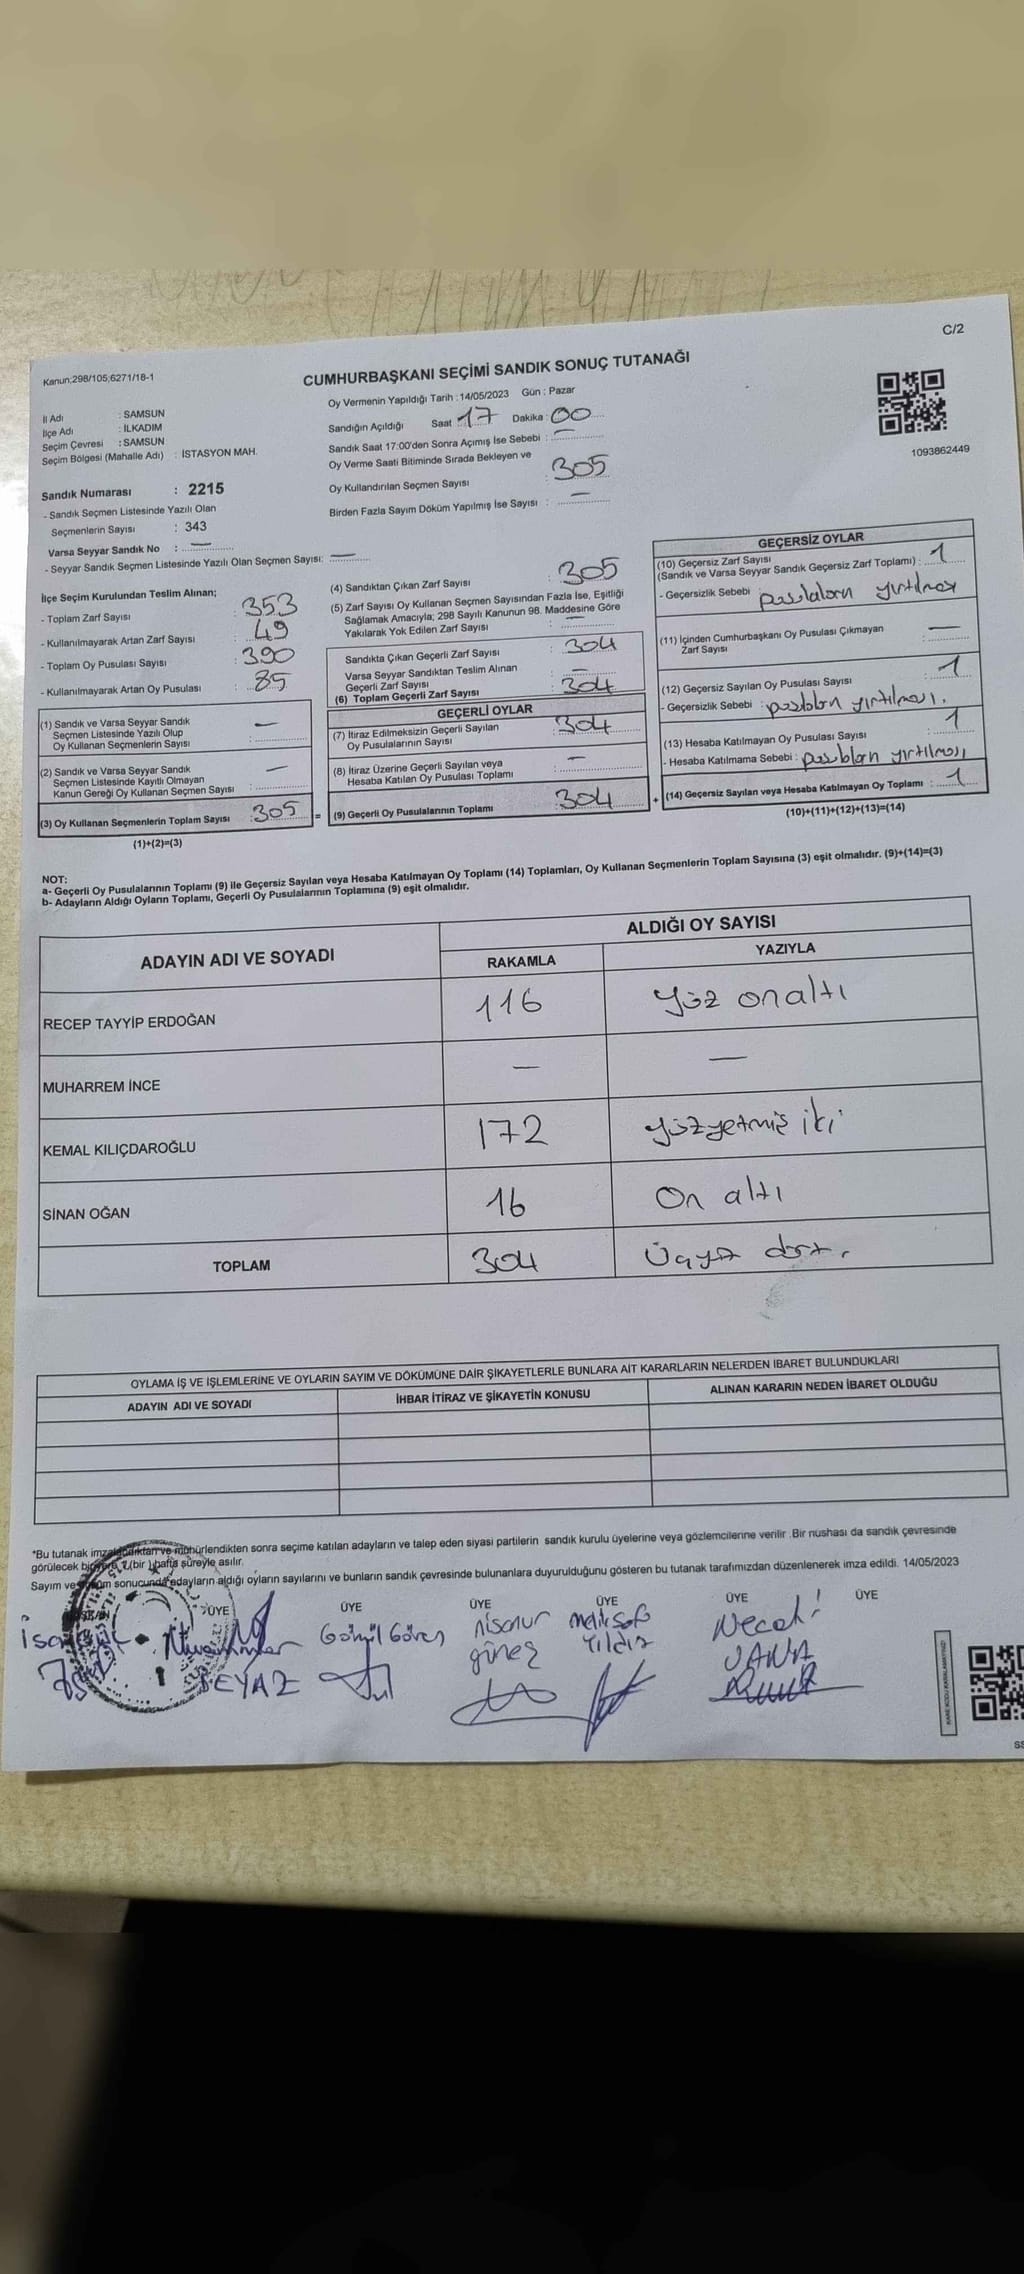 C/2
Kanun;298/105;6271/18-1
CUMHURBAŞKANI SEÇİMİ SANDIK SONUÇ TUTANAĞI
İl Adı : SAMSUN
İlçe Adı : İLKADIM
Seçim Çevresi : SAMSUN
Seçim Bölgesi (Mahalle Adı) : İSTASYON MAH.
Sandık Numarası : 2215
- Sandık Seçmen Listesinde Yazılı Olan
Seçmenlerin Sayısı : 343
Varsa Seyyar Sandık No : —
- Seyyar Sandık Seçmen Listesinde Yazılı Olan Seçmen Sayısı: —
Oy Vermenin Yapıldığı Tarih : 14/05/2023 Gün : Pazar
Sandığın Açıldığı Saat : 17 Dakika : 00
Sandık Saat 17:00'den Sonra Açımış İse Sebebi : —
Oy Verme Saati Bitiminde Sırada Bekleyen ve
Oy Kullandırılan Seçmen Sayısı : 305
Birden Fazla Sayım Döküm Yapılmış İse Sayısı : —
1093862449
İlçe Seçim Kurulundan Teslim Alınan;
- Toplam Zarf Sayısı : 353
- Kullanılmayarak Artan Zarf Sayısı : 49
- Toplam Oy Pusulası Sayısı : 390
- Kullanılmayarak Artan Oy Pusulası : 85
(1) Sandık ve Varsa Seyyar Sandık
Seçmen Listesinde Yazılı Olup
Oy Kullanan Seçmenlerin Sayısı : —
(2) Sandık ve Varsa Seyyar Sandık
Seçmen Listesinde Kayıtlı Olmayan
Kanun Gereği Oy Kullanan Seçmen Sayısı : —
(3) Oy Kullanan Seçmenlerin Toplam Sayısı : 305 =
(1)+(2)=(3)
(4) Sandıktan Çıkan Zarf Sayısı : 305
(5) Zarf Sayısı Oy Kullanan Seçmen Sayısından Fazla İse, Eşitliği
Sağlamak Amacıyla; 298 Sayılı Kanunun 98. Maddesine Göre
Yakılarak Yok Edilen Zarf Sayısı : —
Sandıkta Çıkan Geçerli Zarf Sayısı : 304
Varsa Seyyar Sandıktan Teslim Alınan
Geçerli Zarf Sayısı : —
(6) Toplam Geçerli Zarf Sayısı : 304
GEÇERLİ OYLAR
(7) İtiraz Edilmeksizin Geçerli Sayılan
Oy Pusulalarının Sayısı : 304
(8) İtiraz Üzerine Geçerli Sayılan veya
Hesaba Katılan Oy Pusulası Toplamı : —
(9) Geçerli Oy Pusulalarının Toplamı : 304 +
GEÇERSİZ OYLAR
(10) Geçersiz Zarf Sayısı
(Sandık ve Varsa Seyyar Sandık Geçersiz Zarf Toplamı) : 1
- Geçersizlik Sebebi : yırtılması
(11) İçinden Cumhurbaşkanı Oy Pusulası Çıkmayan
Zarf Sayısı : —
(12) Geçersiz Sayılan Oy Pusulası Sayısı : 1
- Geçersizlik Sebebi : yırtılması.
(13) Hesaba Katılmayan Oy Pusulası Sayısı : 1
- Hesaba Katılmama Sebebi : yırtılması
(14) Geçersiz Sayılan veya Hesaba Katılmayan Oy Toplamı : 1
(10)+(11)+(12)+(13)=(14)
NOT:
a- Geçerli Oy Pusulalarının Toplamı (9) ile Geçersiz Sayılan veya Hesaba Katılmayan Oy Toplamı (14) Toplamları, Oy Kullanan Seçmenlerin Toplam Sayısına (3) eşit olmalıdır. (9)+(14)=(3)
b- Adayların Aldığı Oyların Toplamı, Geçerli Oy Pusulalarının Toplamına (9) eşit olmalıdır.
ADAYIN ADI VE SOYADI
ALDIĞI OY SAYISI
RAKAMLA YAZIYLA
RECEP TAYYİP ERDOĞAN 116 Yüz onaltı
MUHARREM İNCE — —
KEMAL KILIÇDAROĞLU 172 yüzyetmiş iki
SİNAN OĞAN 16 On altı
TOPLAM 304 Üçyüz dört.
OYLAMA İŞ VE İŞLEMLERİNE VE OYLARIN SAYIM VE DÖKÜMÜNE DAİR ŞİKAYETLERLE BUNLARA AİT KARARLARIN NELERDEN İBARET BULUNDUKLARI
ADAYIN ADI VE SOYADI İHBAR İTİRAZ VE ŞİKAYETİN KONUSU ALINAN KARARIN NEDEN İBARET OLDUĞU
*Bu tutanak imzalandıktan ve mühürlendikten sonra seçime katılan adayların ve talep eden siyasi partilerin sandık kurulu üyelerine veya gözlemcilerine verilir .Bir nushası da sandık çevresinde
görülecek bir yere 1 (bir ) hafta süreyle asılır.
Sayım ve döküm sonucunda adayların aldığı oyların sayılarını ve bunların sandık çevresinde bulunanlara duyurulduğunu gösteren bu tutanak tarafımızdan düzenlenerek imza edildi. 14/05/2023
ÜYE ÜYE ÜYE ÜYE ÜYE ÜYE
Gönül Gören nisanur güneş Yıldız Necati
BEYAZ
KARE KODU KARALAMAYINIZ!